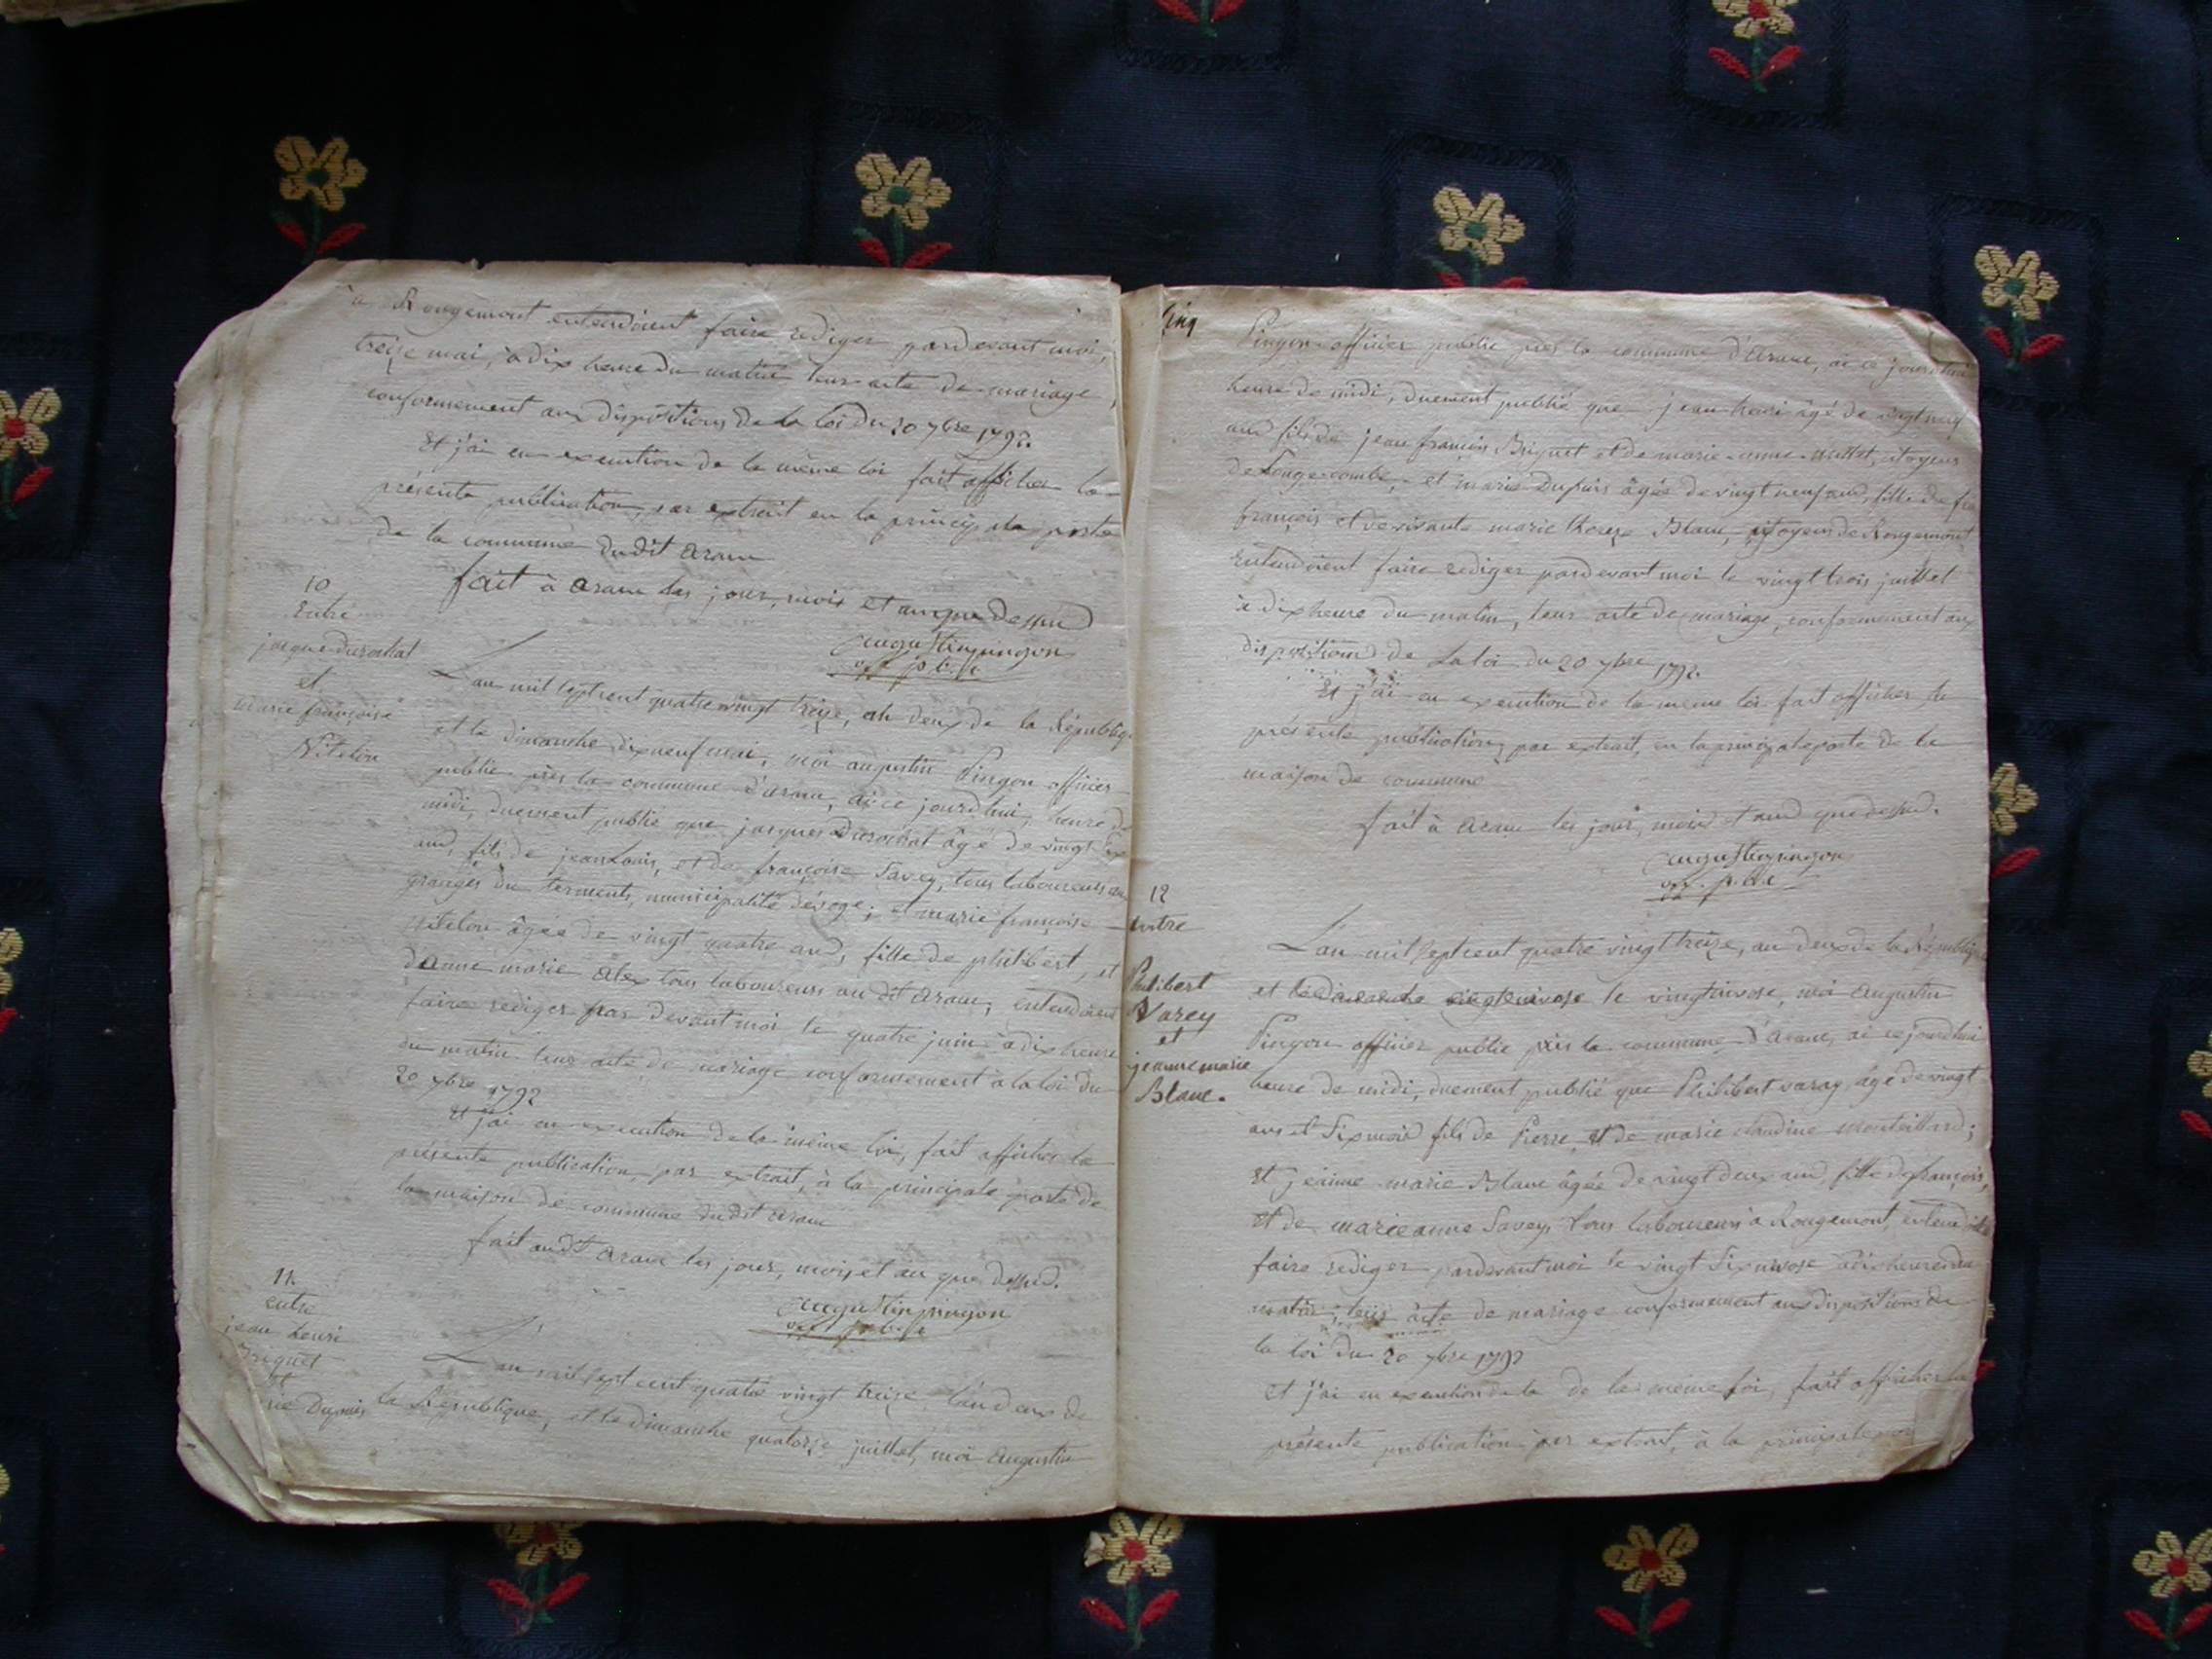 à Rougemont entendoient faire rediger pardevant moi,
treize mai, à dix heure du matin leur acte de mariage,
conformement aux dispositions de la loi du 20 7bre 1792.
Et j'ai en execution de la même loi fait afficher la
présente publication, par extrait en la principale porte
de la commune dudit aranc
fait à aranc les jour, mois et an que dessus
augustin pingon
off. p.b.c
10
Entre
jacque durochat
et
marie françoise
Vitelon
L'an mil sept cent quatre vingt treize, an deux de la République
et le dimanche dixneuf mai, moi augustin Pingon officier
public près la commune d'aranc, ai ce jourd'hui, heure de
midi, duement publié que jacques Durochat âgé de vingt
ans, fils de jean Louis, et de françoise Savey, tous laboureurs
granges du terments, municipalité d'évoge; et marie françoise
vitelon âgée de vingt quatre ans, fille de philibert, et
d'anne marie alex tous laboureurs au dit aranc, entendoient
faire rediger par devant moi le quatre juin à dix heure
du matin leur acte de mariage conformement à la loi du
20 7bre 1792
Et j'ai en execution de la même loi, fait afficher la
présente publication, par extrait, à la principale porte de
la maison de commune dudit aranc
fait audit aranc les jour, mois et an que dessus.
augustin pingon
off p.b.c
11.
entre
jean henri
Briguet
et
rie Dupuis
L'an mil sept cent quatre vingt treize l'an deux de
la République, et le dimanche quatorze juillet, moi augustin
Cinq
Pingon officier public près la commune d'aranc, ai ce jourd'hui
heure de midi, duement publié que jean henri âgé de vingt neuf
ans fils de jean françois Briguet et de marie anne citoyens
de Longecombe, et marie Dupuis âgée de vingt neuf ans, fille de
françois et de vivante marie Blanc, citoyens de Rougemont
Entendoient faire rediger pardevant moi le vingt trois juillet
à dix heure du matin, leur acte de mariage, conformement aux
dispositions de La loi du 20 7bre 1792.
Et j'ai en execution de la même loi fait afficher la
présente publication, par extrait, en la principale porte de la
maison de commune
fait à aranc les jour, mois et ans que dessus.
augustin pingon
off. p.b.c
12
entre
Philibert
Varey
et
jeanne marie
Blanc.
L'an mil sept cent quatre vingt treize, an deux de la République
et le vingt nivose, moi Augustin
Pingon officier public près la commune d'aranc, ai ce jourd'hui
heure de midi, duement publié que Philibert varey âgé de vingt
ans et six mois fils de Pierre, et de marie claudine monteillard;
et jeanne marie Blanc âgée de vingt deux ans, fille de françois,
et de marie anne Savey, tous laboureurs à Rougemont, entendoient
faire rediger pardevant moi le vingt six nivose à dix heure du
matin, leur acte de mariage conformement aux dispositions de
la loi du 20 7bre 1792
et j'ai en execution de la de la même loi, fait afficher la
présente publication par extrait, à la principale